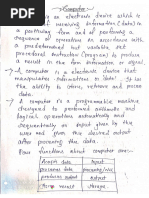 Computer :-
is an electronic device which is
receiving information (data) in
a particular form and of performing a
sequence of operation in accordance with
a predetermined but variable, set
procedural instruction (program) to produce
a result in the form information or signal.
→ A computer is a electronic device that
manipulates information, or data. It has
the ability to store, retrieve and process
data.
→ A computer is a programmable machine
designed to perform arithmetic and
logical operations automatically and
sequentially on input given by the
user and gives the desired output
after processing the data.
Four functions about computer are:-
Accepts data Input
Processes data Processing
Output
Store result Storage